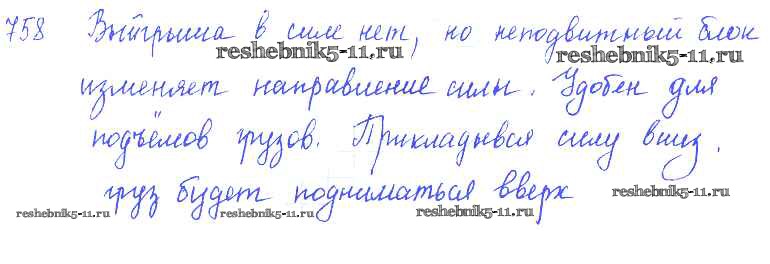 758 Выйгрыша в силе нет, но неподвижный блок
reshebnik5-11.ru reshebnik5-11.ru
изменяет направление силы. Удобен для
подъёмов грузов. Прикладывая силу вниз,
груз будет подниматься вверх
reshebnik5-11.ru reshebnik5-11.ru reshebnik5-11.ru reshebnik5-11.ru